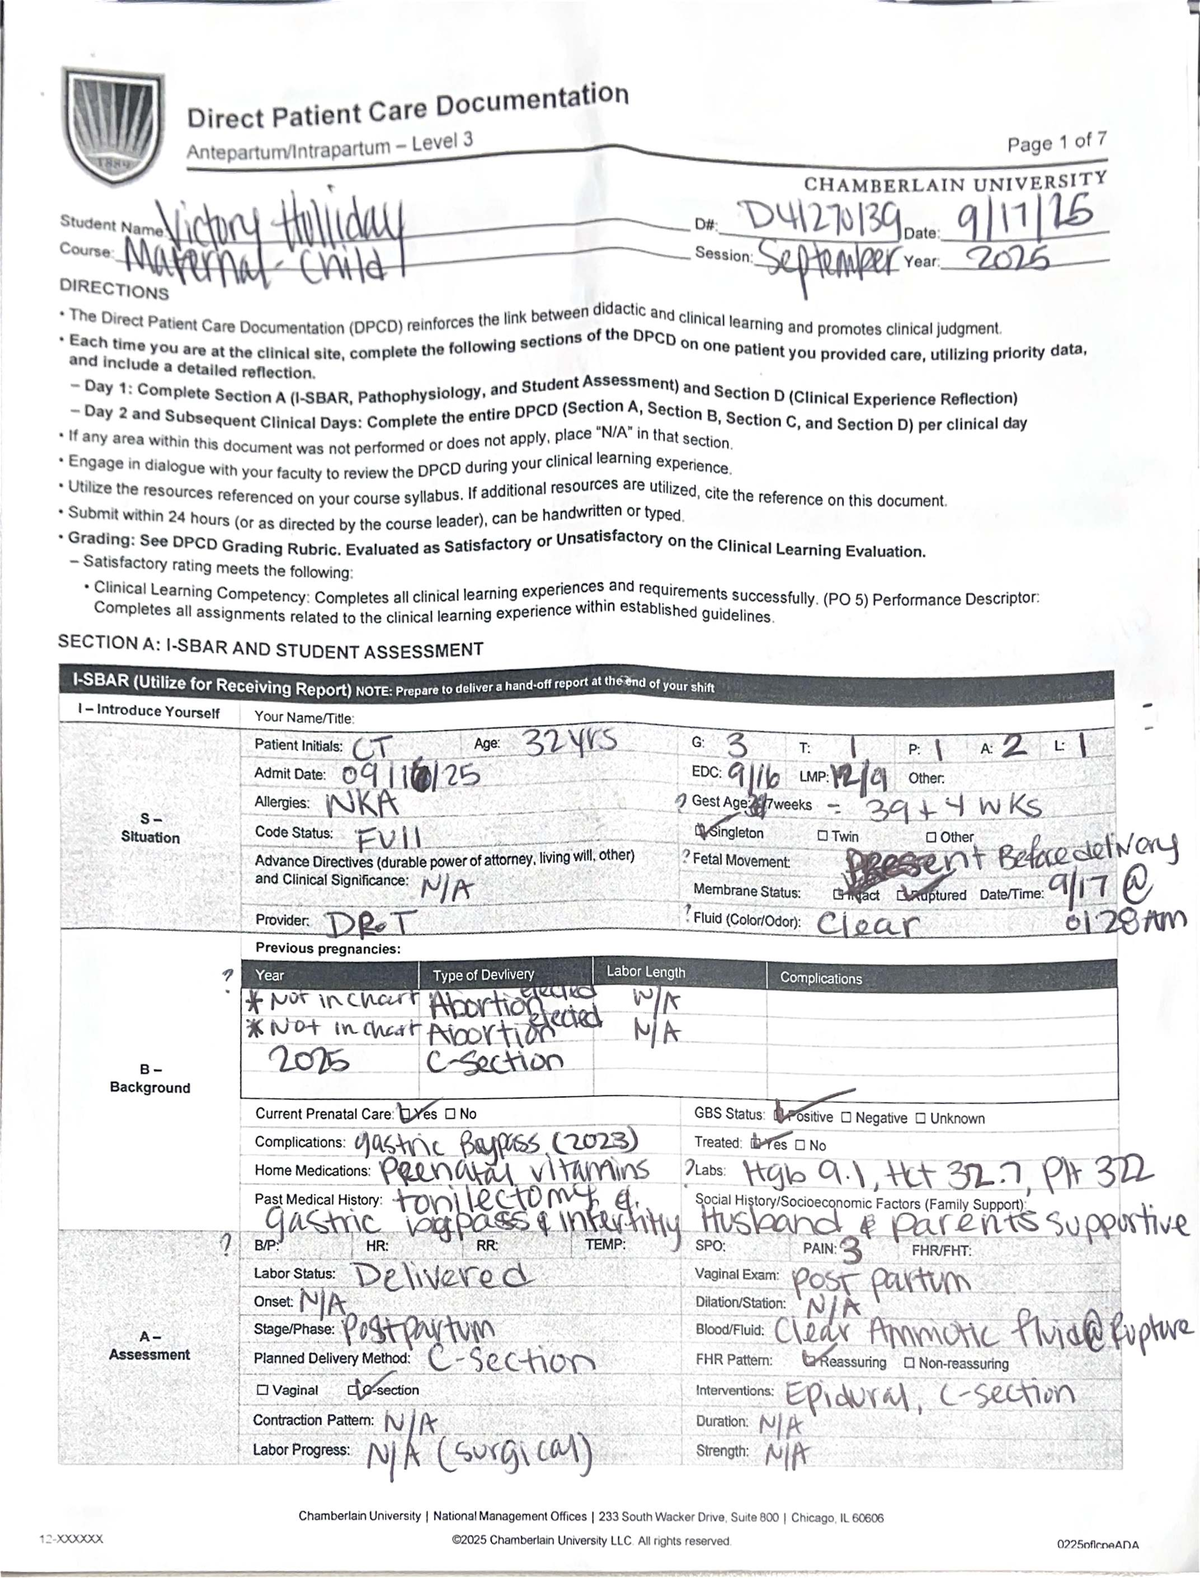 1889
Direct Patient Care Documentation
Antepartum/Intrapartum – Level 3
Page 1 of 7
CHAMBERLAIN UNIVERSITY
Student Name: Victory Holliday D#: D41270139 Date: 9/17/25
Course: Maternal-Child Session: September Year: 2025
DIRECTIONS
• The Direct Patient Care Documentation (DPCD) reinforces the link between didactic and clinical learning and promotes clinical judgment.
• Each time you are at the clinical site, complete the following sections of the DPCD on one patient you provided care, utilizing priority data,
and include a detailed reflection.
– Day 1: Complete Section A (I-SBAR, Pathophysiology, and Student Assessment) and Section D (Clinical Experience Reflection)
– Day 2 and Subsequent Clinical Days: Complete the entire DPCD (Section A, Section B, Section C, and Section D) per clinical day
• If any area within this document was not performed or does not apply, place "N/A" in that section.
• Engage in dialogue with your faculty to review the DPCD during your clinical learning experience.
• Utilize the resources referenced on your course syllabus. If additional resources are utilized, cite the reference on this document.
• Submit within 24 hours (or as directed by the course leader), can be handwritten or typed.
• Grading: See DPCD Grading Rubric. Evaluated as Satisfactory or Unsatisfactory on the Clinical Learning Evaluation.
– Satisfactory rating meets the following:
• Clinical Learning Competency: Completes all clinical learning experiences and requirements successfully. (PO 5) Performance Descriptor:
Completes all assignments related to the clinical learning experience within established guidelines.
SECTION A: I-SBAR AND STUDENT ASSESSMENT
I-SBAR (Utilize for Receiving Report) NOTE: Prepare to deliver a hand-off report at the end of your shift
I – Introduce Yourself Your Name/Title:
S –
Situation
Patient Initials: CT Age: 32 yrs G: 3 T: 1 P: 1 A: 2 L: 1
Admit Date: 09/16/25 EDC: 9/16 LMP: 12/9 Other:
Allergies: NKA ? Gest Age: 7weeks = 39+4 WKS
Code Status: FUll Singleton Twin Other
Advance Directives (durable power of attorney, living will, other)
and Clinical Significance: N/A
? Fetal Movement: Present Before delivery
Membrane Status: Intact Ruptured Date/Time: 9/17 @
01:28 Am
Provider: DR.T ? Fluid (Color/Odor): Clear
B –
Background
Previous pregnancies:
? Year Type of Devlivery Labor Length Complications
* Not in chart Abortion elected N/A
* Not in chart Abortion elected N/A
2025 C-Section
Current Prenatal Care: Yes No GBS Status: Positive Negative Unknown
Complications: gastric Baypass (2023) Treated: Yes No
Home Medications: Prenatal vitamins ? Labs: Hgb 9.1, Hct 32.7, Plt 322
Past Medical History: tonilectomy &
gastric bypass & infertility
Social History/Socioeconomic Factors (Family Support):
Husband & parents supportive
A –
Assessment
? B/P: HR: RR: TEMP: SPO: PAIN: 3 FHR/FHT:
Labor Status: Delivered Vaginal Exam: post partum
Onset: N/A Dilation/Station: N/A
Stage/Phase: Postpartum Blood/Fluid: Clear Ammotic fluid @ Rupture
Planned Delivery Method: C-Section FHR Pattern: Reassuring Non-reassuring
Vaginal C-section Interventions: Epidural, C-section
Contraction Pattern: N/A Duration: N/A
Labor Progress: N/A (surgical) Strength: N/A
Chamberlain University | National Management Offices | 233 South Wacker Drive, Suite 800 | Chicago, IL 60606
12-XXXXXX ©2025 Chamberlain University LLC. All rights reserved. 0225pflcpeADA